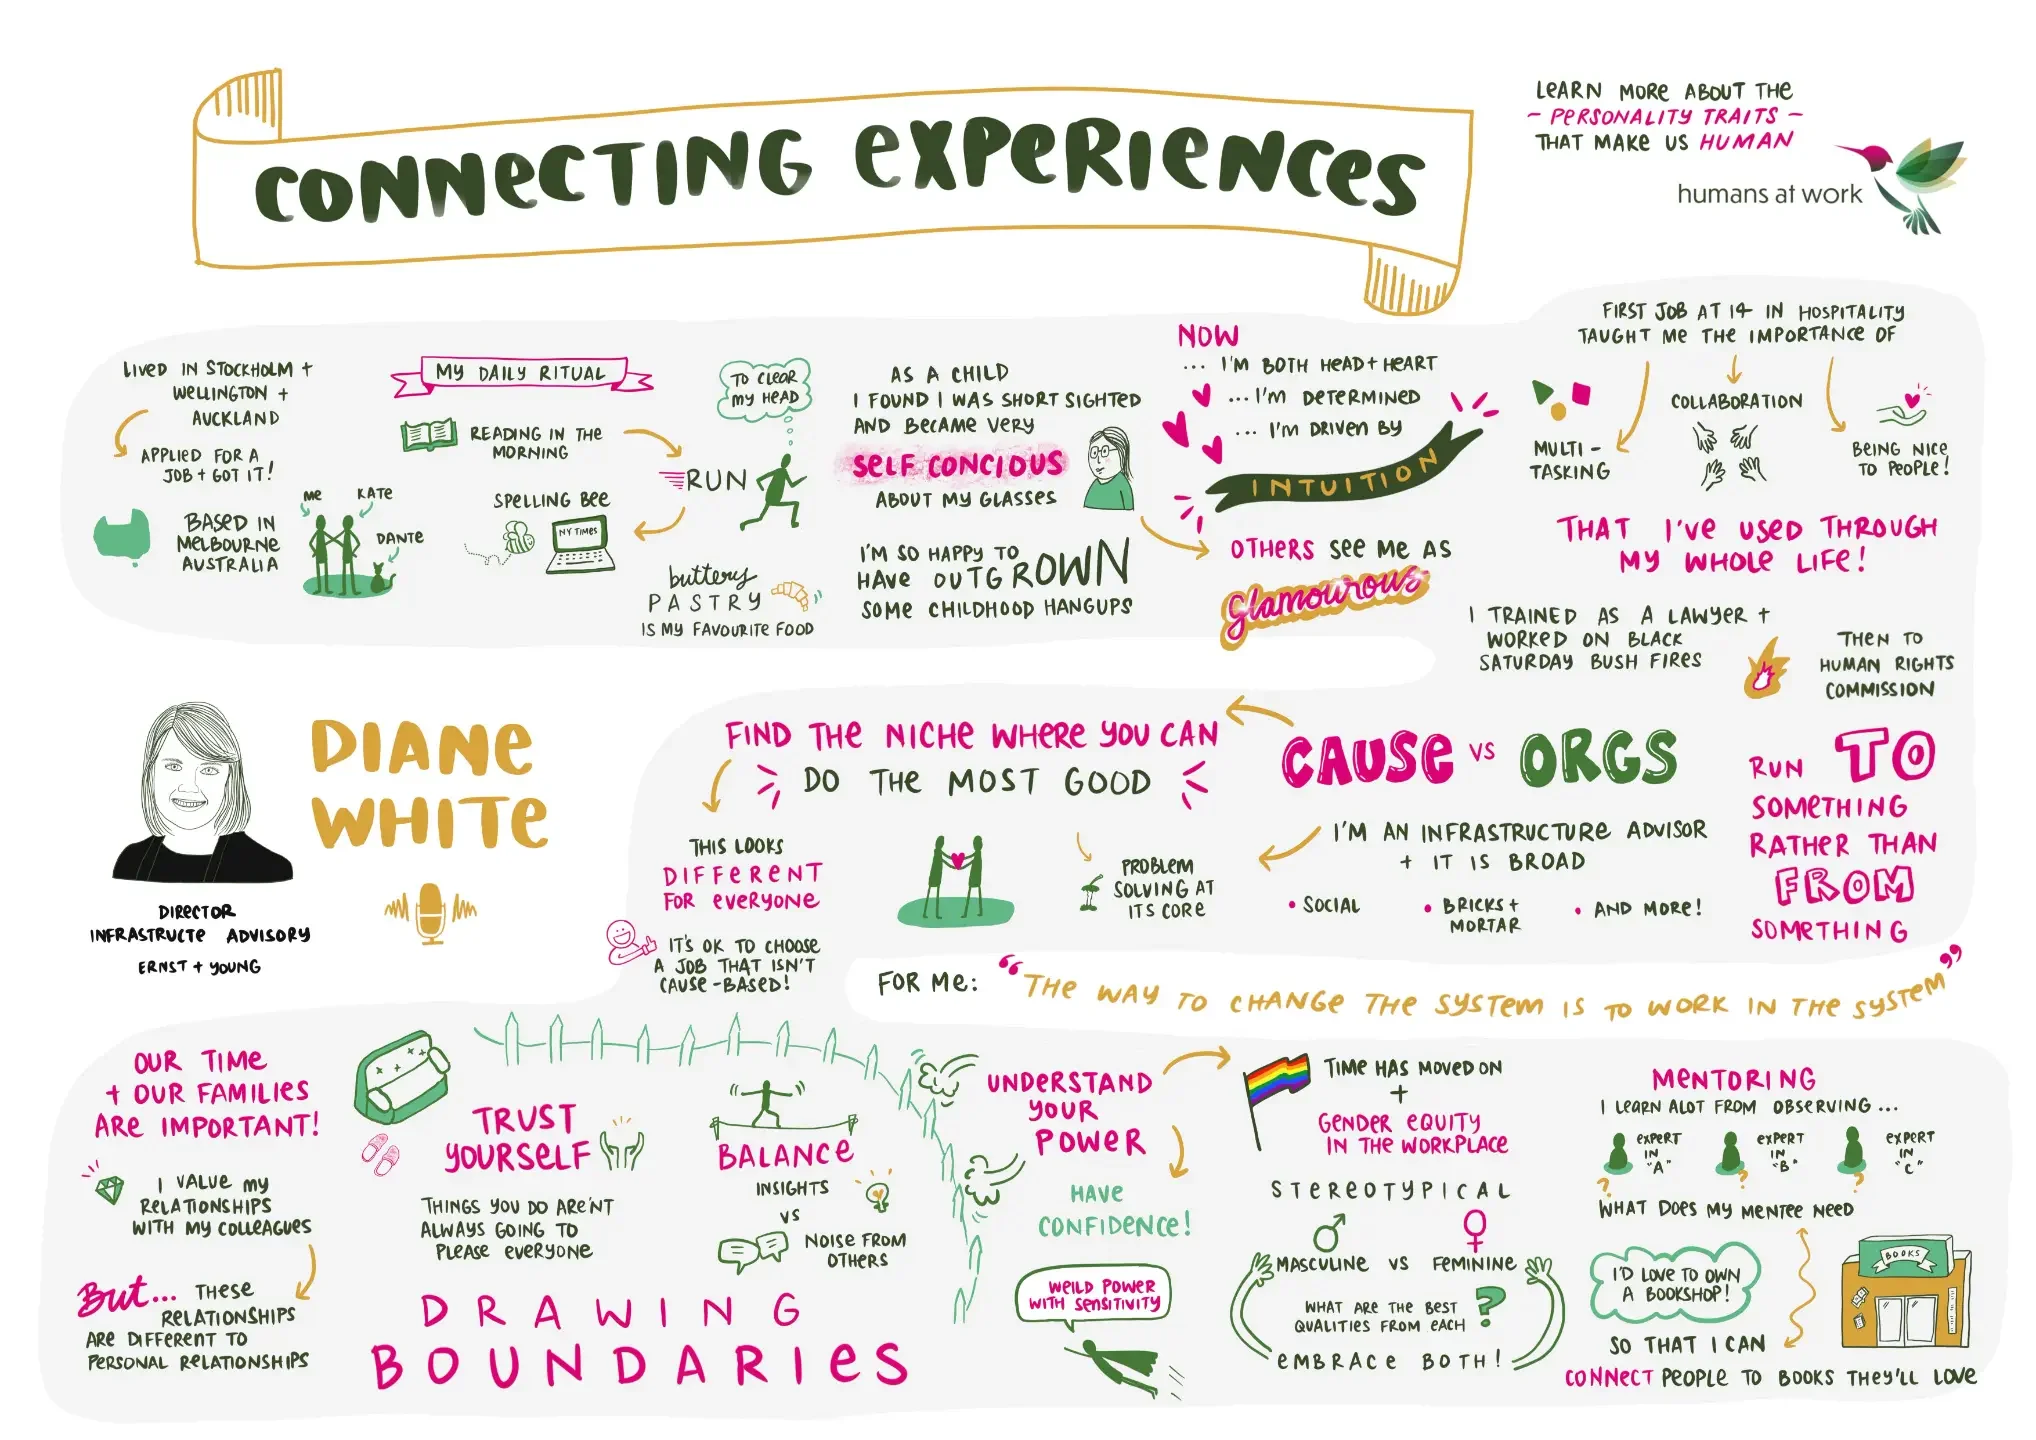 CONNECTING EXPERIENCES
LEARN MORE ABOUT THE
- PERSONALITY TRAITS -
THAT MAKE US HUMAN
humans at work
LIVED IN STOCKHOLM +
WELLINGTON +
AUCKLAND
APPLIED FOR A
JOB + GOT IT!
BASED IN
MELBOURNE
AUSTRALIA
ME
KATE
DANTE
MY DAILY RITUAL
READING IN THE
MORNING
TO CLEAR
MY HEAD
RUN
SPELLING BEE
NY TIMES
buttery
PASTRY
IS MY FAVOURITE FOOD
AS A CHILD
I FOUND I WAS SHORT SIGHTED
AND BECAME VERY
SELF CONCIOUS
ABOUT MY GLASSES
I'M SO HAPPY TO
HAVE OUTGROWN
SOME CHILDHOOD HANGUPS
NOW
... I'M BOTH HEAD + HEART
... I'M DETERMINED
... I'M DRIVEN BY
INTUITION
OTHERS SEE ME AS
Glamourous
FIRST JOB AT 14 IN HOSPITALITY
TAUGHT ME THE IMPORTANCE OF
MULTI-
TASKING
COLLABORATION
BEING NICE
TO PEOPLE!
THAT I'VE USED THROUGH
MY WHOLE LIFE!
I TRAINED AS A LAWYER +
WORKED ON BLACK
SATURDAY BUSH FIRES
THEN TO
HUMAN RIGHTS
COMMISSION
RUN TO
SOMETHING
RATHER THAN
FROM
SOMETHING
CAUSE VS ORGS
I'M AN INFRASTRUCTURE ADVISOR
+ IT IS BROAD
• SOCIAL
• BRICKS +
MORTAR
• AND MORE!
FIND THE NICHE WHERE YOU CAN
DO THE MOST GOOD
PROBLEM
SOLVING AT
ITS CORE
THIS LOOKS
DIFFERENT
FOR EVERYONE
IT'S OK TO CHOOSE
A JOB THAT ISN'T
CAUSE-BASED!
FOR ME: "THE WAY TO CHANGE THE SYSTEM IS TO WORK IN THE SYSTEM"
DIANE
WHITE
DIRECTOR
INFRASTRUCTE ADVISORY
ERNST + YOUNG
OUR TIME
+ OUR FAMILIES
ARE IMPORTANT!
I VALUE MY
RELATIONSHIPS
WITH MY COLLEAGUES
But... THESE
RELATIONSHIPS
ARE DIFFERENT TO
PERSONAL RELATIONSHIPS
TRUST
YOURSELF
THINGS YOU DO ARE'NT
ALWAYS GOING TO
PLEASE EVERYONE
BALANCE
INSIGHTS
VS
NOISE FROM
OTHERS
DRAWING
BOUNDARIES
UNDERSTAND
YOUR
POWER
HAVE
CONFIDENCE!
WEILD POWER
WITH SENSITIVITY
TIME HAS MOVED ON
+
GENDER EQUITY
IN THE WORKPLACE
STEREOTYPICAL
MASCULINE VS FEMININE
WHAT ARE THE BEST
QUALITIES FROM EACH ?
EMBRACE BOTH!
MENTORING
I LEARN ALOT FROM OBSERVING...
EXPERT
IN
"A"
EXPERT
IN
"B"
EXPERT
IN
"C"
? ? ?
WHAT DOES MY MENTEE NEED
I'D LOVE TO OWN
A BOOKSHOP!
BOOKS
SO THAT I CAN
CONNECT PEOPLE TO BOOKS THEY'LL LOVE